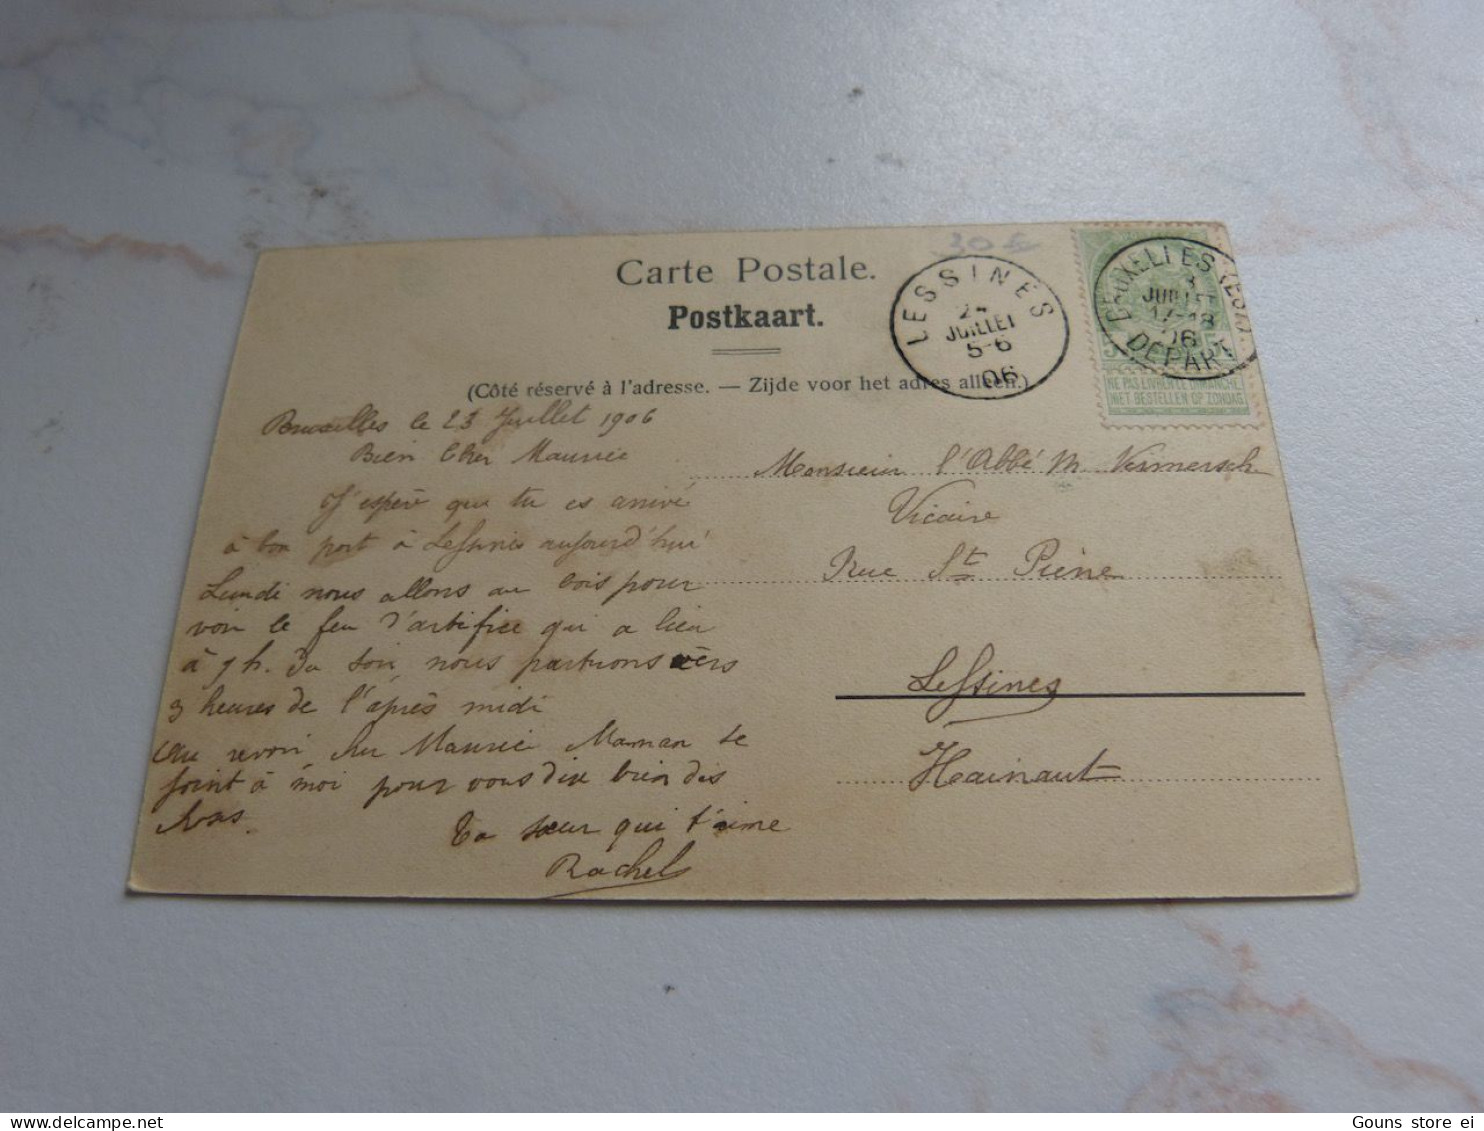 30 €
Carte Postale.
Postkaart.
LESSINES
24
JUILLET
5-6
06
BRUXELLES
JUILLET
17-18
06
DÉPART
NE PAS LIVRER LE DIMANCHE
NIET BESTELLEN OP ZONDAG
(Côté réservé à l'adresse. — Zijde voor het adres alleen.)
Bruxelles le 23 Juillet 1906
Bien Cher Maurice
J'espère que tu es arrivé
à bon port à Lessines aujourd'hui
Lundi nous allons au bois pour
voir le feu d'artifice qui a lieu
à 9 h. du soir nous partirons vers
3 heures de l'après midi
Au revoir cher Maurice Maman se
joint à moi pour vous dire bien des
choses.
Ta sœur qui t'aime
Rachel
Monsieur l'Abbé M. Vermersch
Vicaire
Rue St Pierre
Lessines
Hainaut
Gouns store ei